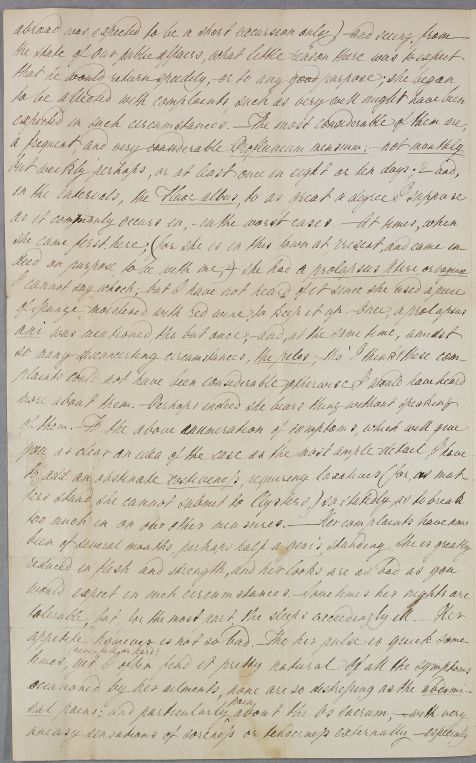 abroad was expected to be a short excursion only;) and seeing, from
the state of our public affairs, what little reason there was to expect
that he would return speedily, or to any good purpose; she began
to be affected with complaints such as very well might have been
expected in such circumstances. — The most considerable of them are,
a frequent and very considerable Profluvium mensium; — not monthly
but weekly perhaps, or at least once in eight or ten days; & and,
in the intervals, the Fluor albus, to as great a degree I suppose
as it commonly occurs in, — in the worst cases. — At times, when
she came first here, (for she is in this town at present, and came in-
deed on purpose to be with me,) she had a prolapsus Uteri or vaginæ
I cannot say which, but I have not heard of it since she used a piece
of spunge, moistened with red wine, to keep it up. — Once, a prolapsus
ani was mentioned tho but once; — and, at the same time, amidst
so many disconcerting circumstances, the piles; tho' I think these com-
plaints could not have been considerable otherwise I would have heard
more about them. — Perhaps indeed she bears them without speaking
of them. — To the above enumeration of symptoms, which will give
you as clear an idea of the case as the most ample detail I have
to add an obstinate costiveness, requiring laxatives (for, as mat-
ters stand she cannot submit to Clysters,) so statedly as to break
too much in on our other measures. — Her complaints have now
been of several months, perhaps half a year's standing. She is greatly
reduced in flesh and strength, and her looks are as bad as you
would expect in such circumstances. — Sometimes her nights are
tolerable, but, for the most part she sleeps exceedingly ill. — Her
appetite however is not so bad. — Tho her pulse is quick some-
times, (never full or hard) yet I often find it pretty natural. Of all the symptoms
occasioned by her ailments, none are so distressing as the abdomi-
nal pains; and particularly pains about the Os sacrum, — with very
uneasy sensations of soreness or tenderness externally — especially